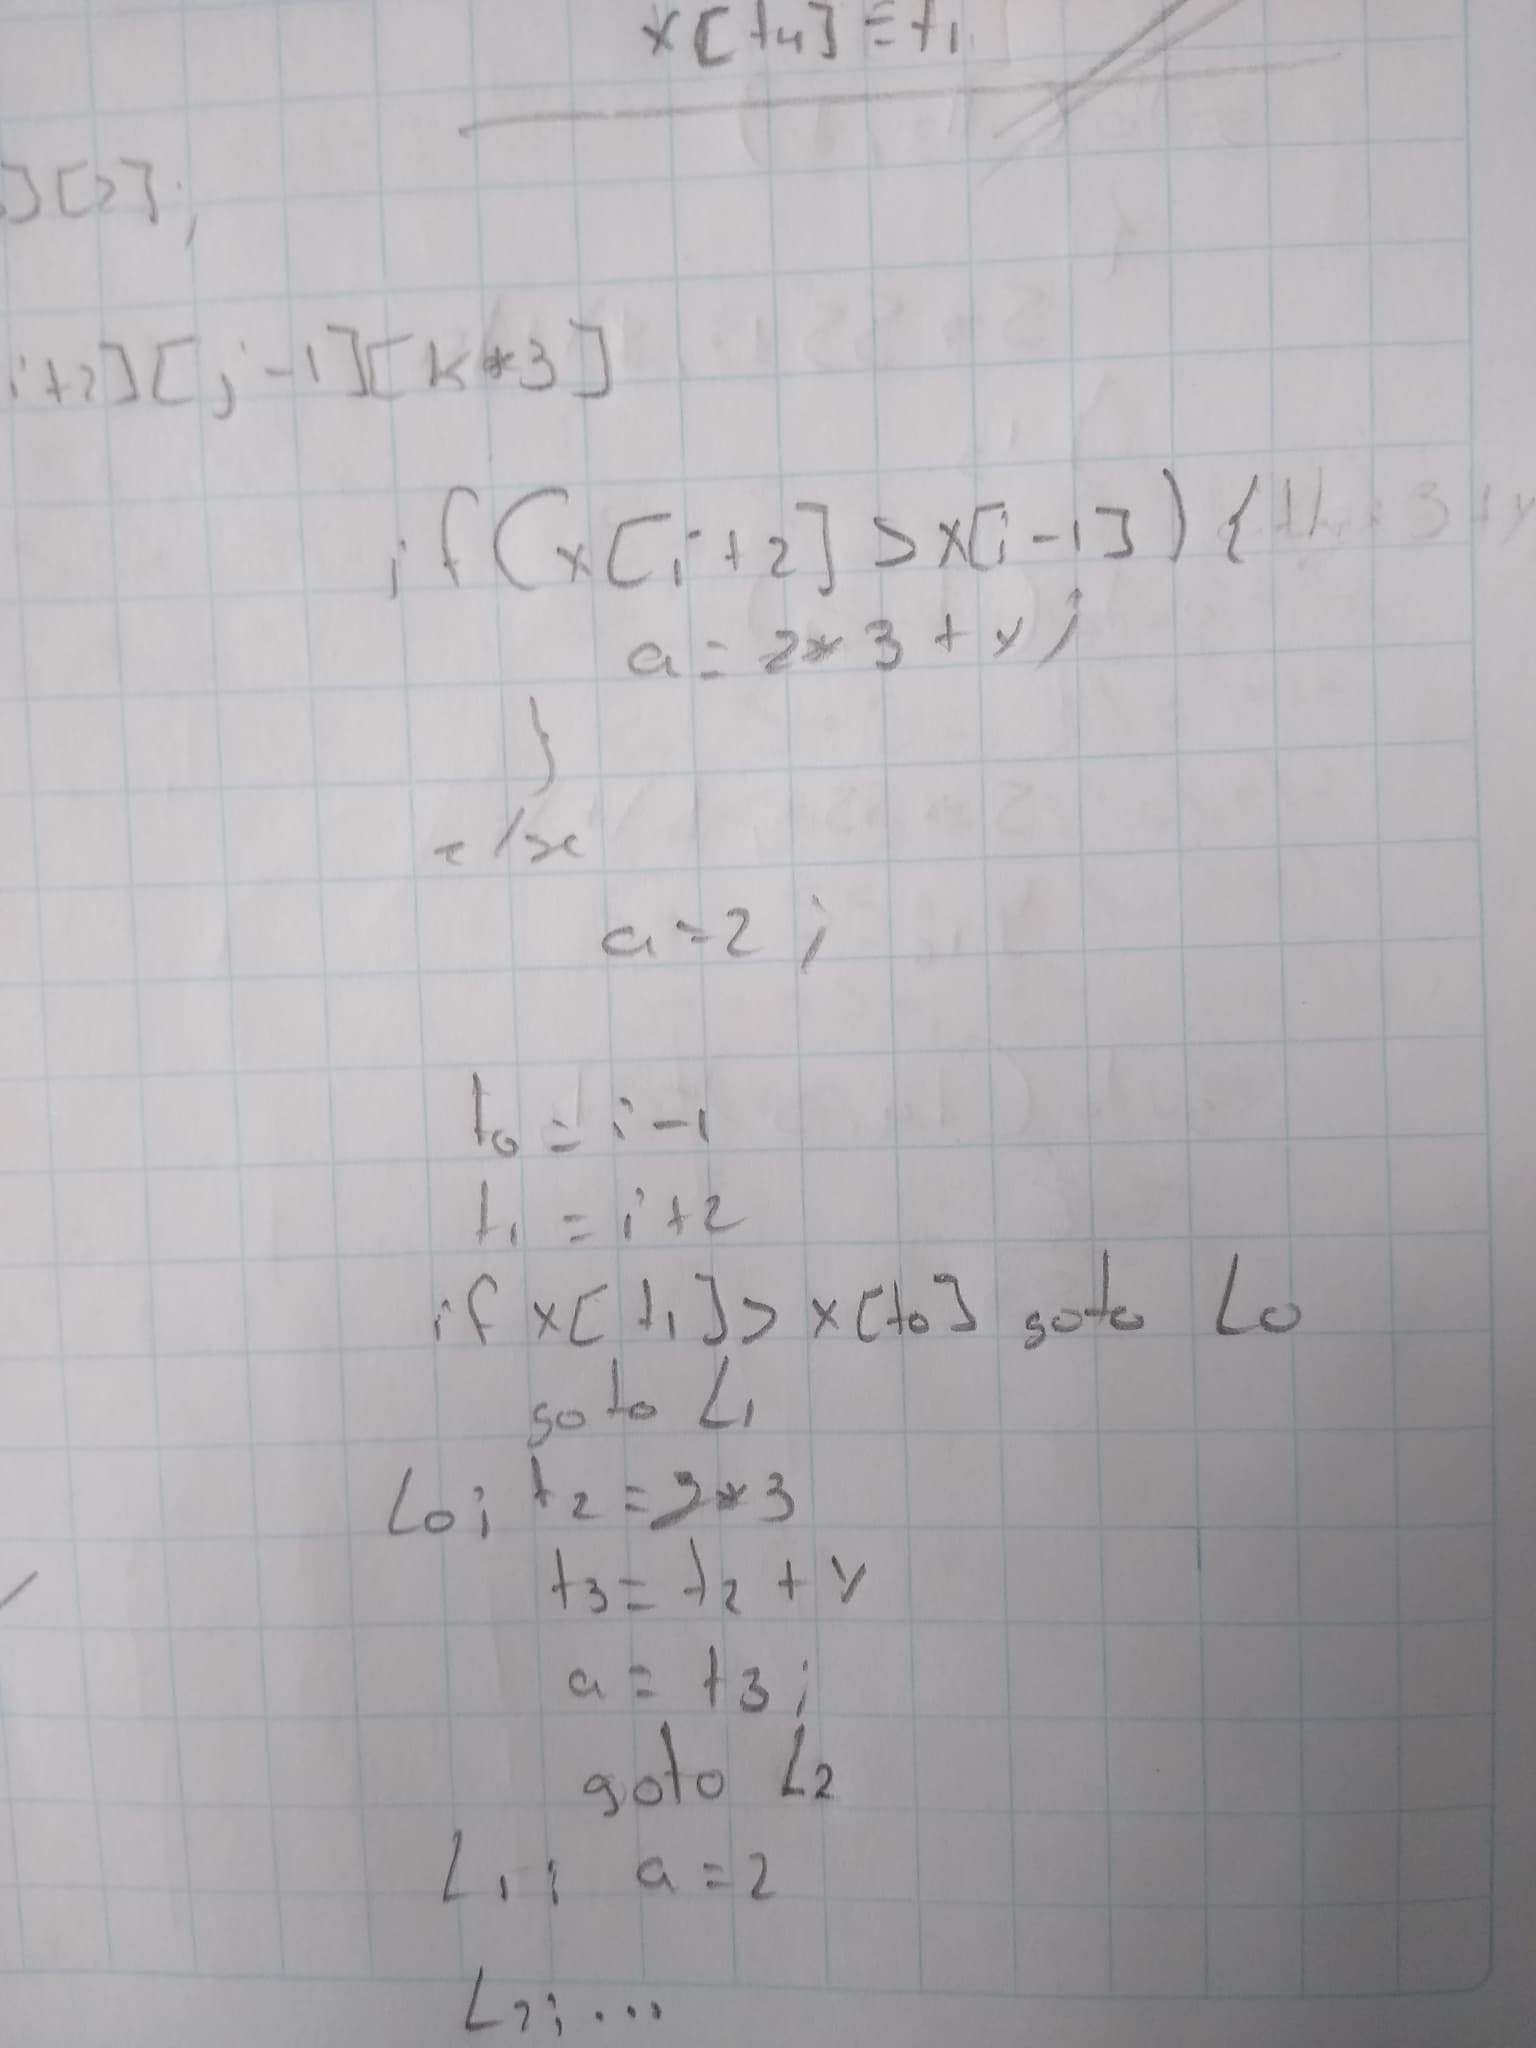 x[t4]=t1
][2];
i+2][j-1][k*3]
if(x[i+2]>x[i-1]){
a=2*3+y;
}
else
a=2;
t0=i-1
t1=i+2
if x[t1]>x[t0] goto L0
goto L1
L0; t2=3*3
t3=t2+y
a=t3;
goto L2
L1; a=2
L2; ...